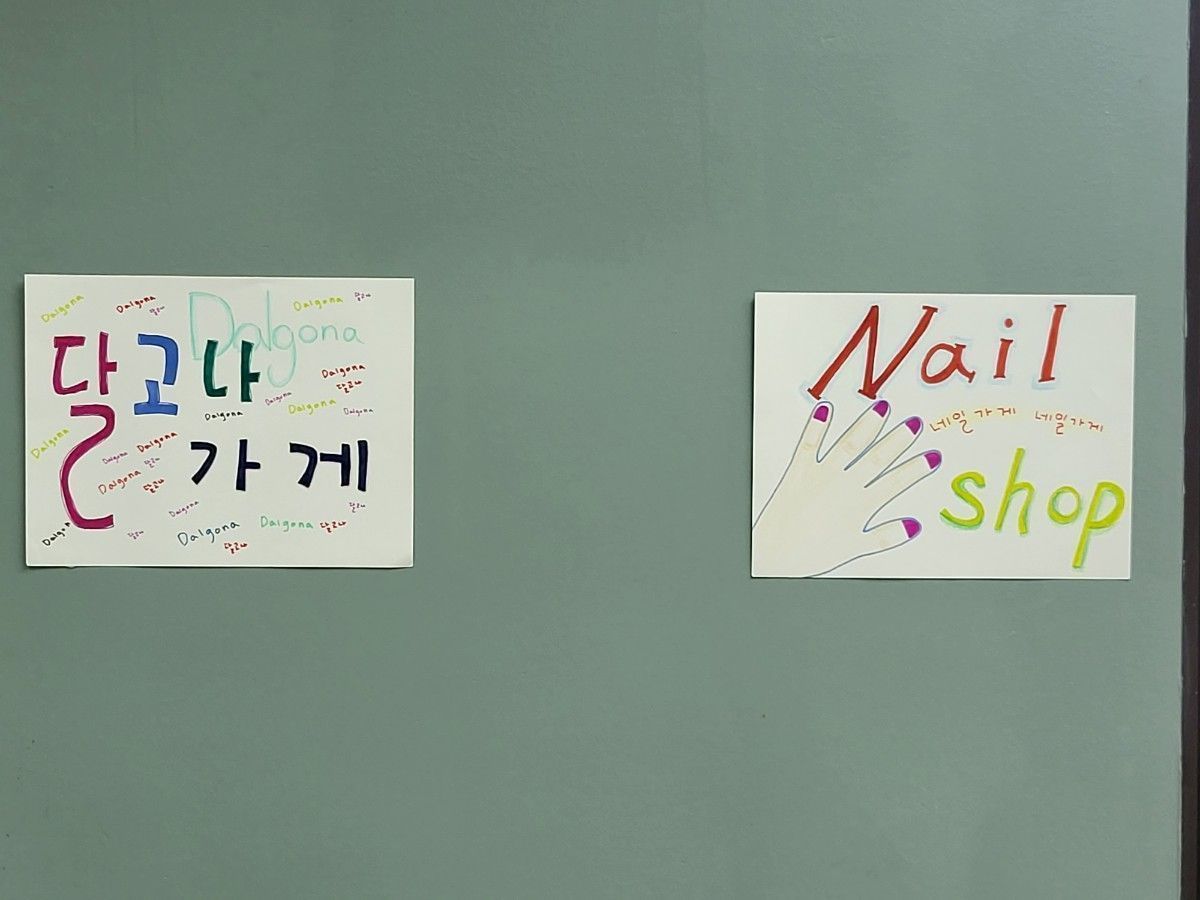 Dalgona
Dalgona
달고나
Dalgona
Dalgona
달고나
달고나
Dalgona
달고나
Dalgona
Dalgona
Dalgona
Dalgona
가게
Dalgona
Dalgona
Dalgona
달고나
Dalgona
달고나
Dalgona
달고나
Dalgona
달고나
Dalgona
Dalgona
달고나
달고나
Nail
네일가게 네일가게
shop